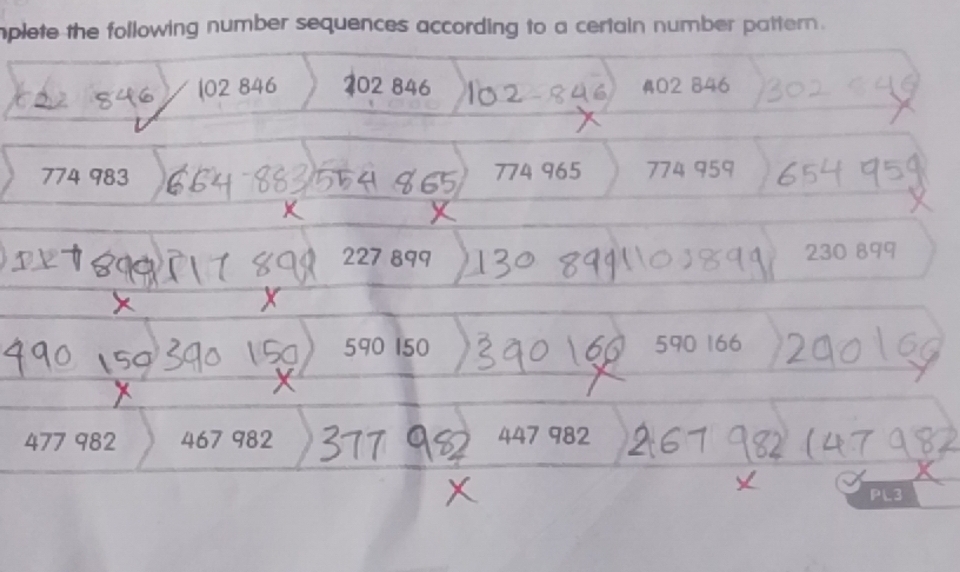 mplete the following number sequences according to a certain number pattern.
846 102 846 202 846 102-846 402 846 302 846
774 983 664 883 554 865 774 965 774 959 654 959
899 117 899 227 899 130 899 110 899 230 899
490 150 390 150 590 150 390 166 590 166 290 166
477 982 467 982 377 982 447 982 267 982 147 982
PL3